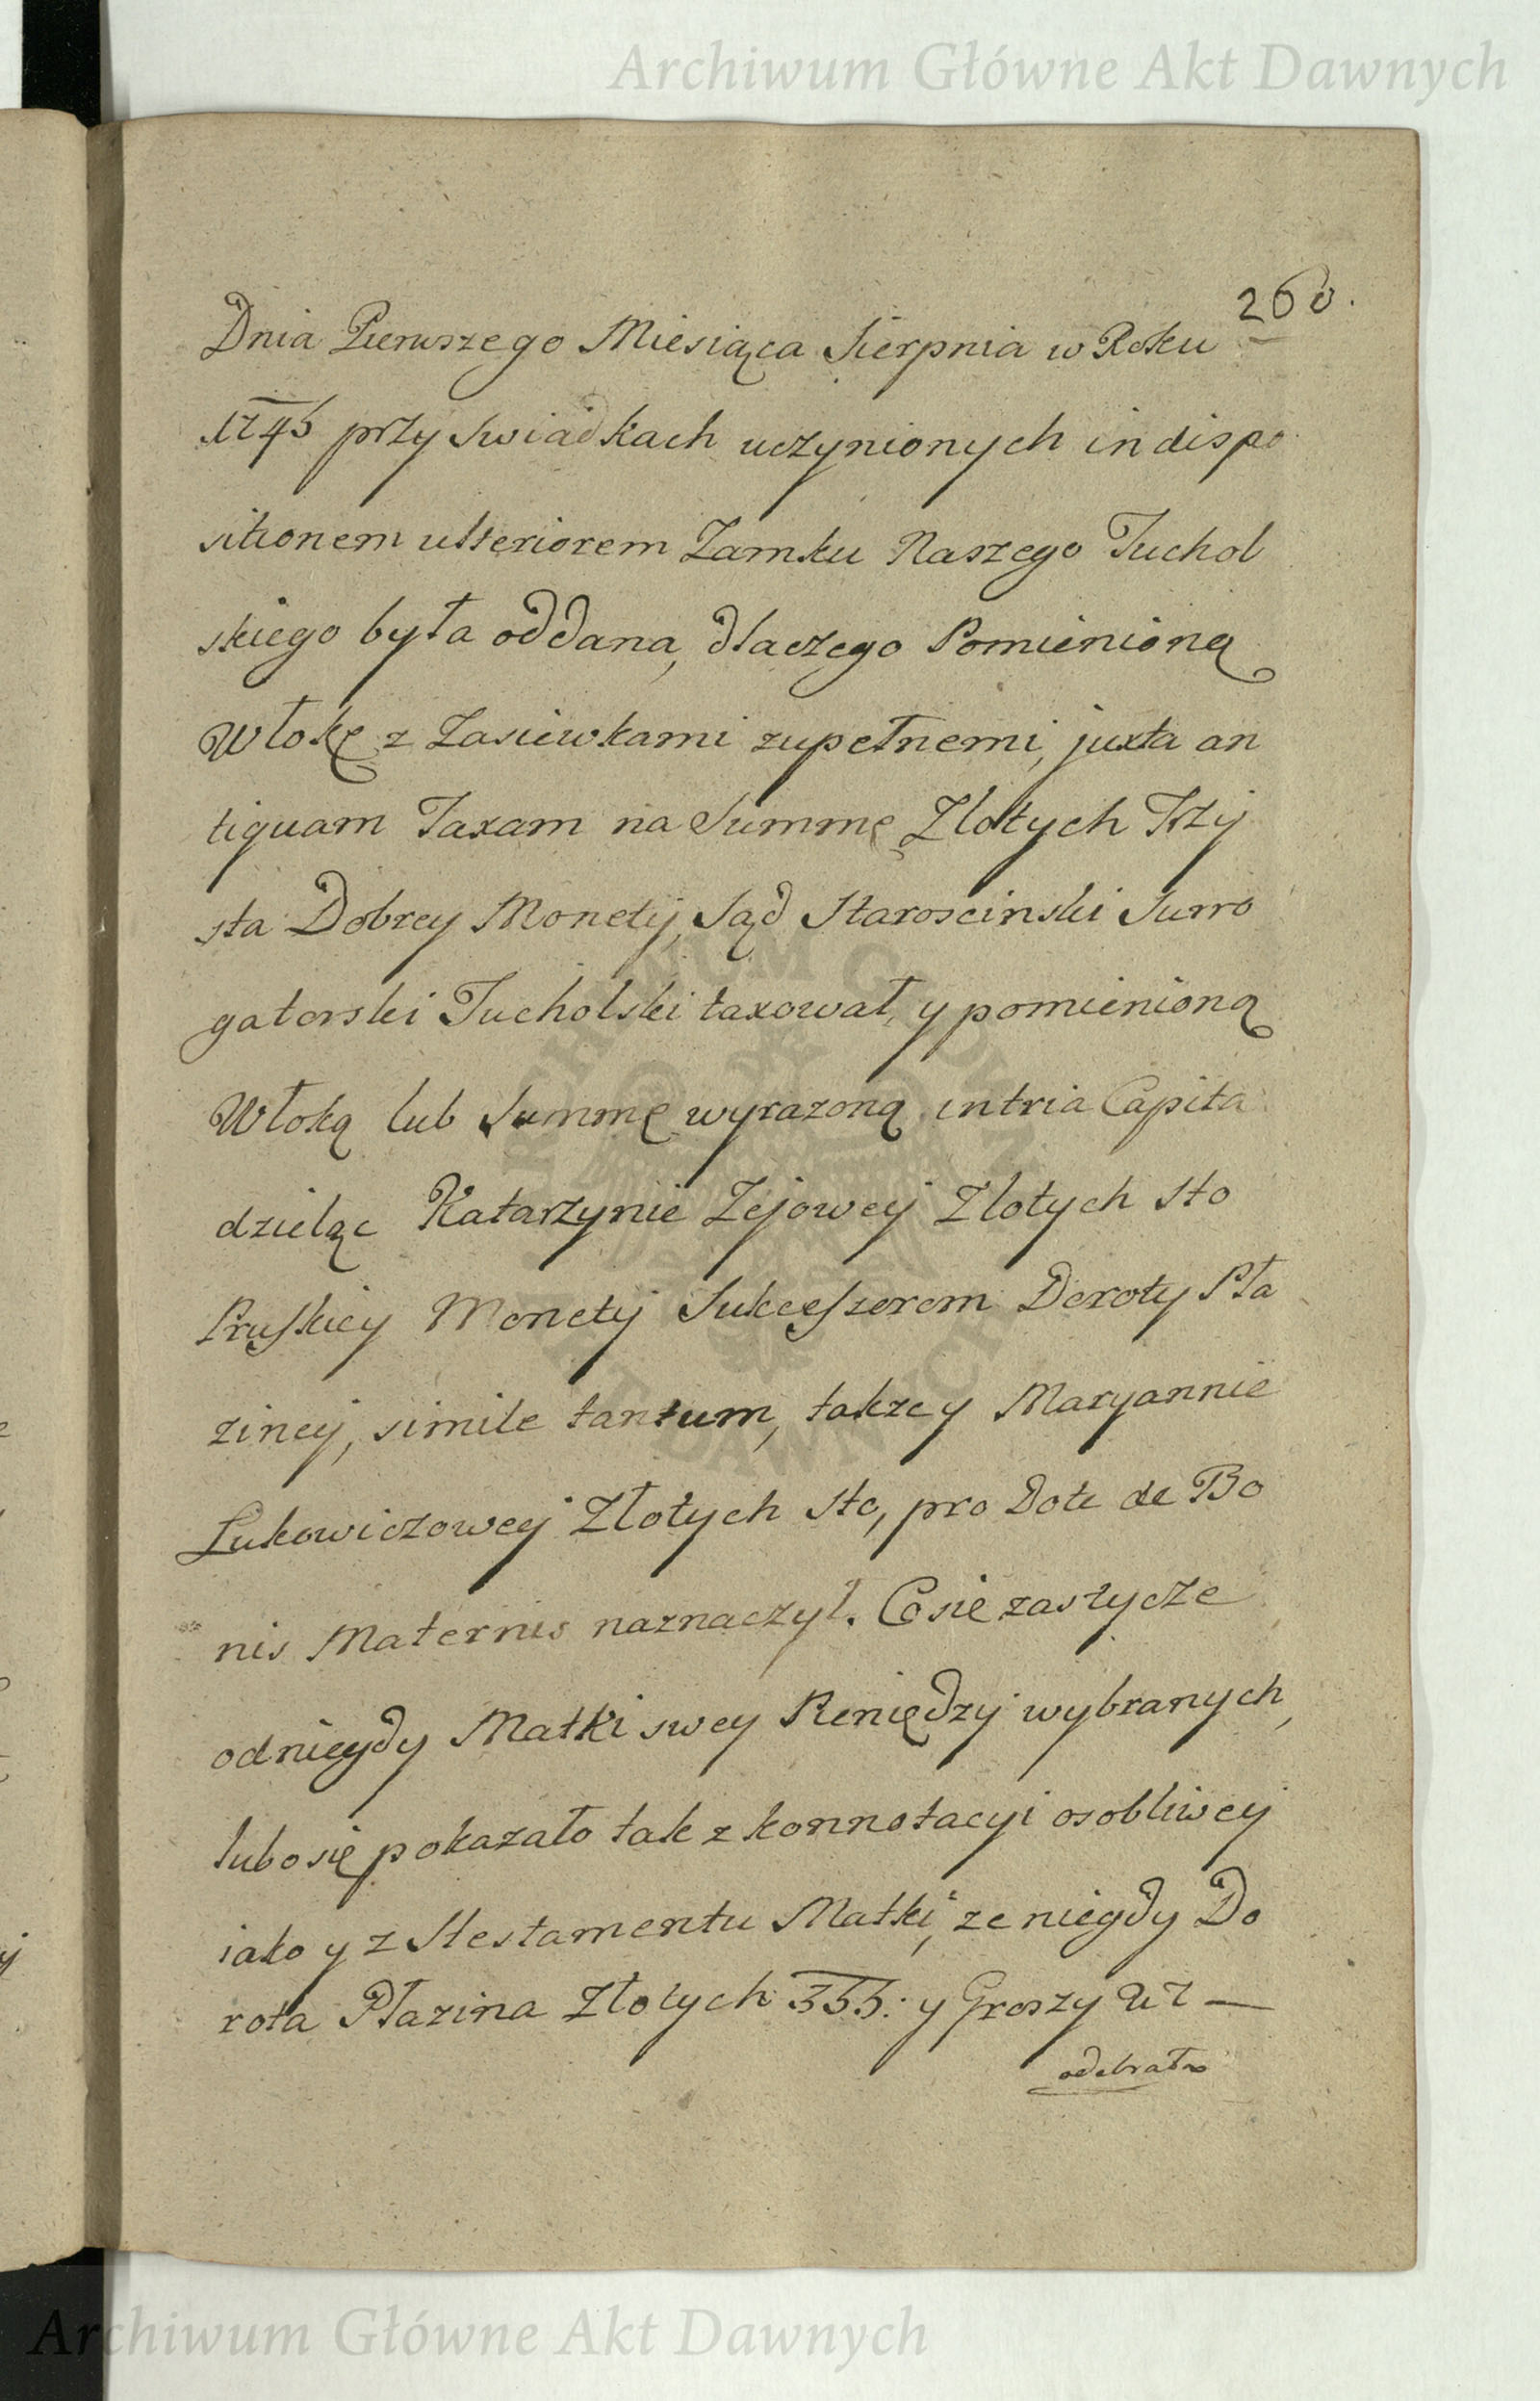 Archiwum Główne Akt Dawnych
260.
Dnia Pierwszego Miesiąca Sierpnia w Roku
1745 przy Swiadkach uczynionych in dispo
sitionem ulteriorem Zamku Naszego Tuchol
skiego była oddana, dlaczego Pomienioną
Włokę z Zasiewkami zupełnemi, juxta an
tiquam Taxam na Summę Zlotych Trzy
sta Dobrey Monety, Sąd Staroscinski Surro
gatorski Tucholski taxował, y pomienioną
Włoką lub Summę wyrazoną in tria Capita
dzieląc Katarzynie Zejowey Zlotych Sto
Pruskiey Monety Sukcessorom Doroty Pła
ziney, simile tantum, takzey Maryannie
Lukowiczowey Złotych Sto, pro Dote de Bo
nis Maternis naznaczył. Co się zas tycze
od niegdy Matki swey Pieniędzy wybranych,
lubo się pokazało tak z konnotacyi osobliwey
iako y z Testamentu Matki, ze niegdy Do
rota Płazina Złotych 355: y Groszy
odebrała
ARCHIWUM GŁÓWNE AKT DAWNYCH
Archiwum Główne Akt Dawnych